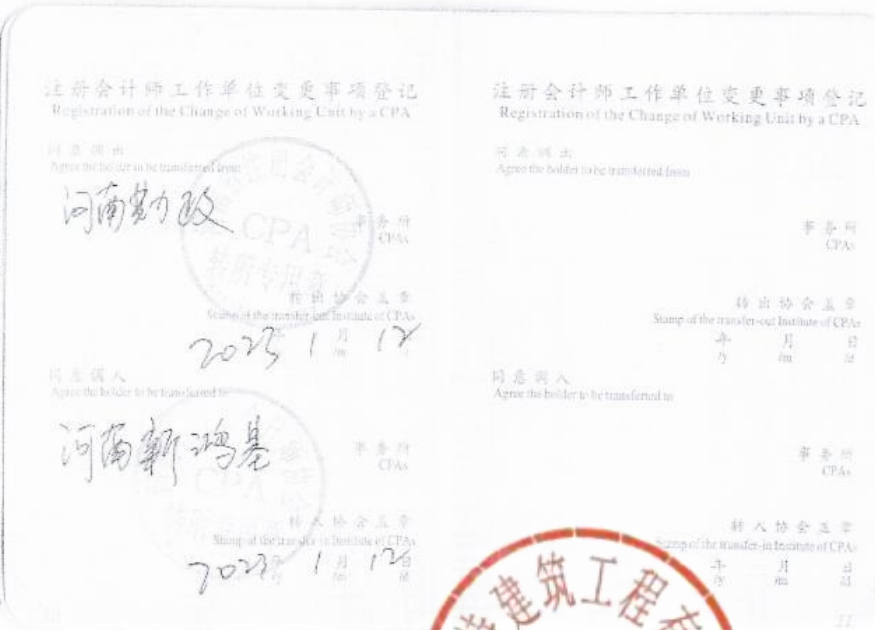 注册会计师工作单位变更事项登记
Registration of the Change of Working Unit by a CPA
同意调出
Agree the holder to be transferred from
河南勤政
事务所
CPAs
CPA
转所专用章
转出协会盖章
Stamp of the transfer-out Institute of CPAs
2023 年 1 月 12
/y /m
同意调入
Agree the holder to be transferred to
河南新鸿基
事务所
CPAs
CPA
转入协会盖章
Stamp of the transfer-in Institute of CPAs
2023 年 1 月 12 日
/y /m /d
注册会计师工作单位变更事项登记
Registration of the Change of Working Unit by a CPA
同意调出
Agree the holder to be transferred from
事务所
CPAs
转出协会盖章
Stamp of the transfer-out Institute of CPAs
年 月 日
/y /m /d
同意调入
Agree the holder to be transferred to
事务所
CPAs
转入协会盖章
Stamp of the transfer-in Institute of CPAs
年 月 日
/y /m /d
11
建筑工程有